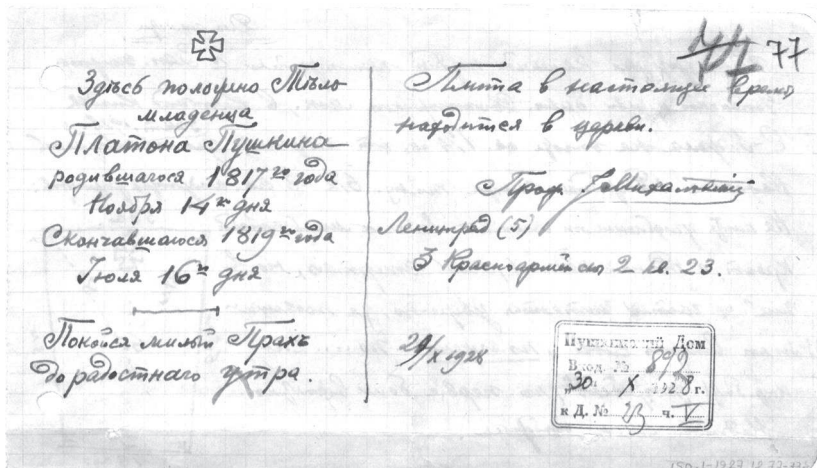 Здѣсь положено Тѣло
младенца
Платона Пушкина
родившагося 1817го года
Ноября 14го дня
Скончавшагося 1819го года
Iюля 16го дня
Покойся милый Прахъ
до радостнаго утра.
77
Плита в настоящее время
находится в церкви.
Проф.
Ленинград (5)
3 Красноармейск 2 кв. 23.
29/X 1928
Пушкинский Дом
Вход. № 892
"30" X 1928 г.
к Д. № ч. V